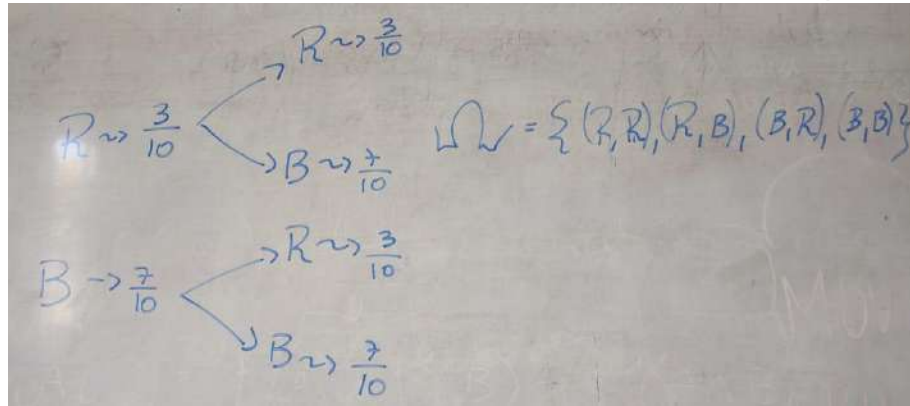 R ~> 3/10
R ~> 3/10
B ~> 7/10
Ω = { (R,R),(R,B),(B,R),(B,B)}
B -> 7/10
R ~> 3/10
B ~> 7/10